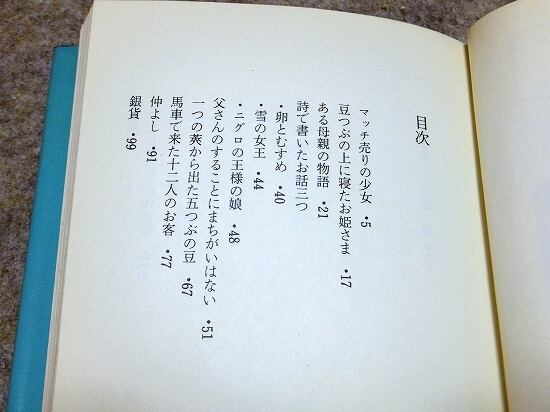 目次
マッチ売りの少女 •5
豆つぶの上に寝たお姫さま •17
ある母親の物語 •21
詩で書いたお話三つ
•卵とむすめ •40
•雪の女王 •44
•ニグロの王様の娘 •48
父さんのすることにまちがいはない •51
一つの莢から出た五つぶの豆 •67
馬車で来た十二人のお客 •77
仲よし •91
銀貨 •99